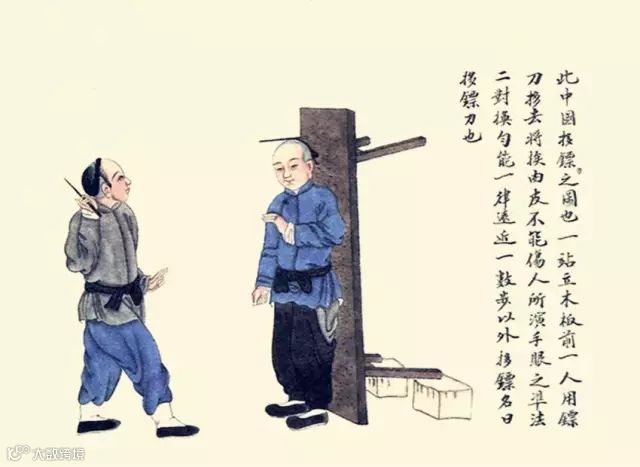 此中国扔鏢之圖也一站立木板前一人用鏢
刀扔去將挨肉皮不能傷人所演手眼之準法
二對換勻能一律遠近一數步以外扔鏢名曰
扔鏢刀也
大数跨境